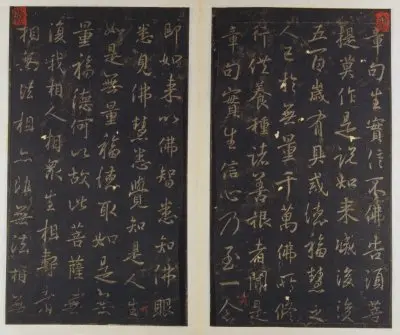 章句生實信不佛告須菩
提莫作是說如來滅後後
五百歲有具戒德福慧之
人已於無量千萬佛所修
行供養種諸善根者聞是
章句實生信心乃至一念
即如來以佛智悉知佛眼
悉見佛慧悉覺知是人生
如是無量福德取如是無
量福德何以故此菩薩無
復我相人相眾生相壽者
相無法相亦非無法相無